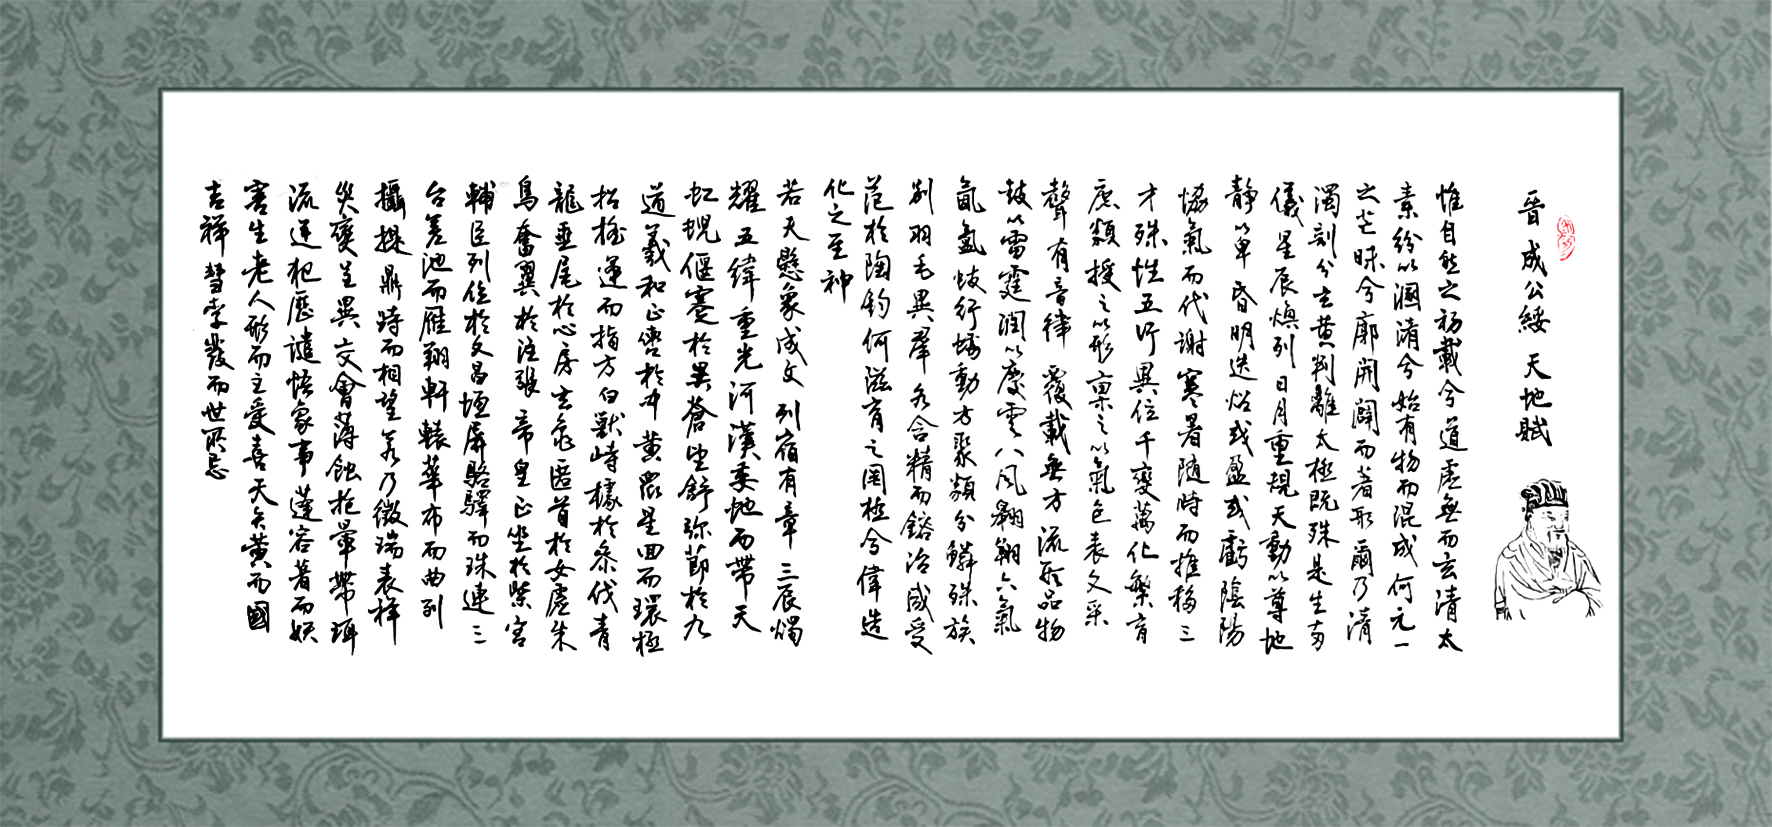 晉 成公綏 天地賦
惟自然之初載兮道虛無而玄清太
素紛以溷淆兮始有物而混成何元一
之芒昧兮廓開闢而著形爾乃清
濁剖分玄黃判離太極既殊是生兩
儀星辰煥列日月重規天動以尊地
靜以卑昏明迭炤或盈或虧陰陽
協氣而代謝寒暑隨時而推移三
才殊性五行異位千變萬化繁育
庶類授之以形稟之以氣色表文采
聲有音律 覆載無方流形品物
鼓以雷霆潤以慶雲八風翱翔六氣
氤氳蚑行蠕動方聚類分鱗殊族
別羽毛異群各含精而鎔冶咸受
范於陶鈞何滋育之罔極兮偉造
化之至神
若夫懸象成文列宿有章三辰燭
耀五緯重光河漢委蛇而帶天
虹蜺偃蹇於昊蒼望舒弥節於九
道羲和正轡於中黃眾星回而環極
招搖運而指方白獸峙據於參伐青
龍垂尾於心房玄龜匿首於女虛朱
鳥奮翼於注張帝皇正坐於紫宮
輔臣列位於文昌垣屏駱驛而珠連三
台差池而雁翔軒轅華布而曲列
攝提鼎峙而相望若乃徵瑞表祥
災變呈異交會薄蝕抱暈帶珥
流逆犯歷譴悟象事蓬容著而妖
害生老人形而主受喜天矢黃而國
吉祥彗孛發而世所忌